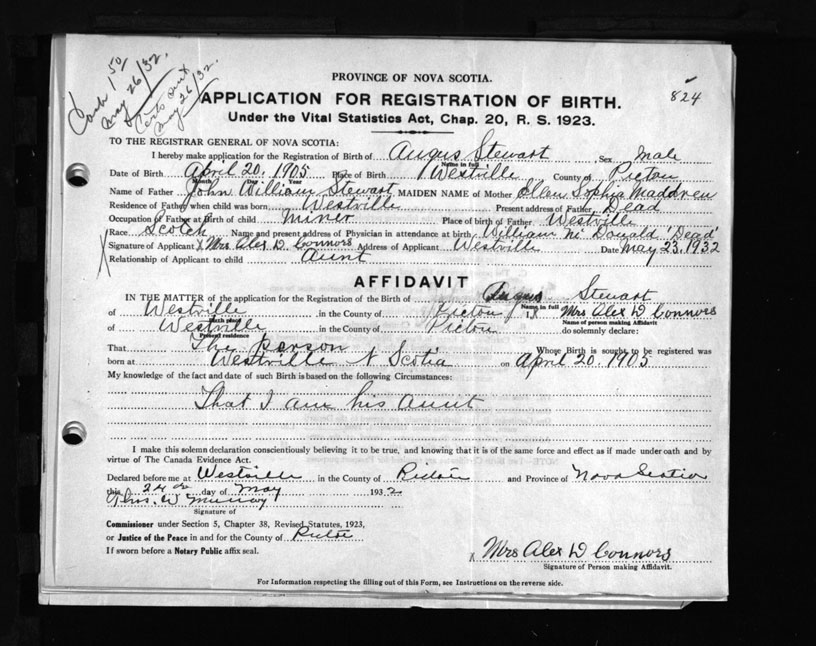 Cash 1.50
May 26/32.
Certs sent
May 26/32.
824
PROVINCE OF NOVA SCOTIA.
APPLICATION FOR REGISTRATION OF BIRTH.
Under the Vital Statistics Act, Chap. 20, R. S. 1923.
TO THE REGISTRAR GENERAL OF NOVA SCOTIA:
I hereby make application for the Registration of Birth of Angus Stewart Sex Male
Name in full
Date of Birth April 20. 1905 Place of Birth Westville County of Pictou
Month Day Year
Name of Father John William Stewart MAIDEN NAME of Mother Ellen Sophia Maddren
Residence of Father when child was born Westville Present address of Father Dead
Occupation of Father at Birth of child miner Place of birth of Father Westville
Race Scotch Name and present address of Physician in attendance at birth William Mc Donald 'Dead'
Signature of Applicant x Mrs Alex D. Connors Address of Applicant Westville Date May 23, 1932
Relationship of Applicant to child Aunt
X
AFFIDAVIT
IN THE MATTER of the application for the Registration of the Birth of Angus Stewart
Name in full
of Westville in the County of Pictou I, x Mrs Alex D Connors
Birth place
Name of person making Affidavit
of Westville in the County of Pictou do solemnly declare:
Present residence
That The person Whose Birth is sought to be registered was
born at Westville N Scotia on April 20. 1905
My knowledge of the fact and date of such Birth is based on the following Circumstances:
That I am his Aunt
I make this solemn declaration conscientiously believing it to be true, and knowing that it is of the same force and effect as if made under oath and by
virtue of The Canada Evidence Act.
Declared before me at Westville in the County of Pictou and Province of Nova Scotia
this 24th day of May 1932
Thos. W Murray
Signature of
Commissioner under Section 5, Chapter 38, Revised Statutes, 1923,
or Justice of the Peace in and for the County of Pictou
If sworn before a Notary Public affix seal.
x Mrs Alex D Connors
Signature of Person making Affidavit.
For Information respecting the filling out of this Form, see Instructions on the reverse side.